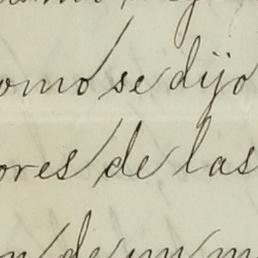 omo se dijo
ores de las
de un